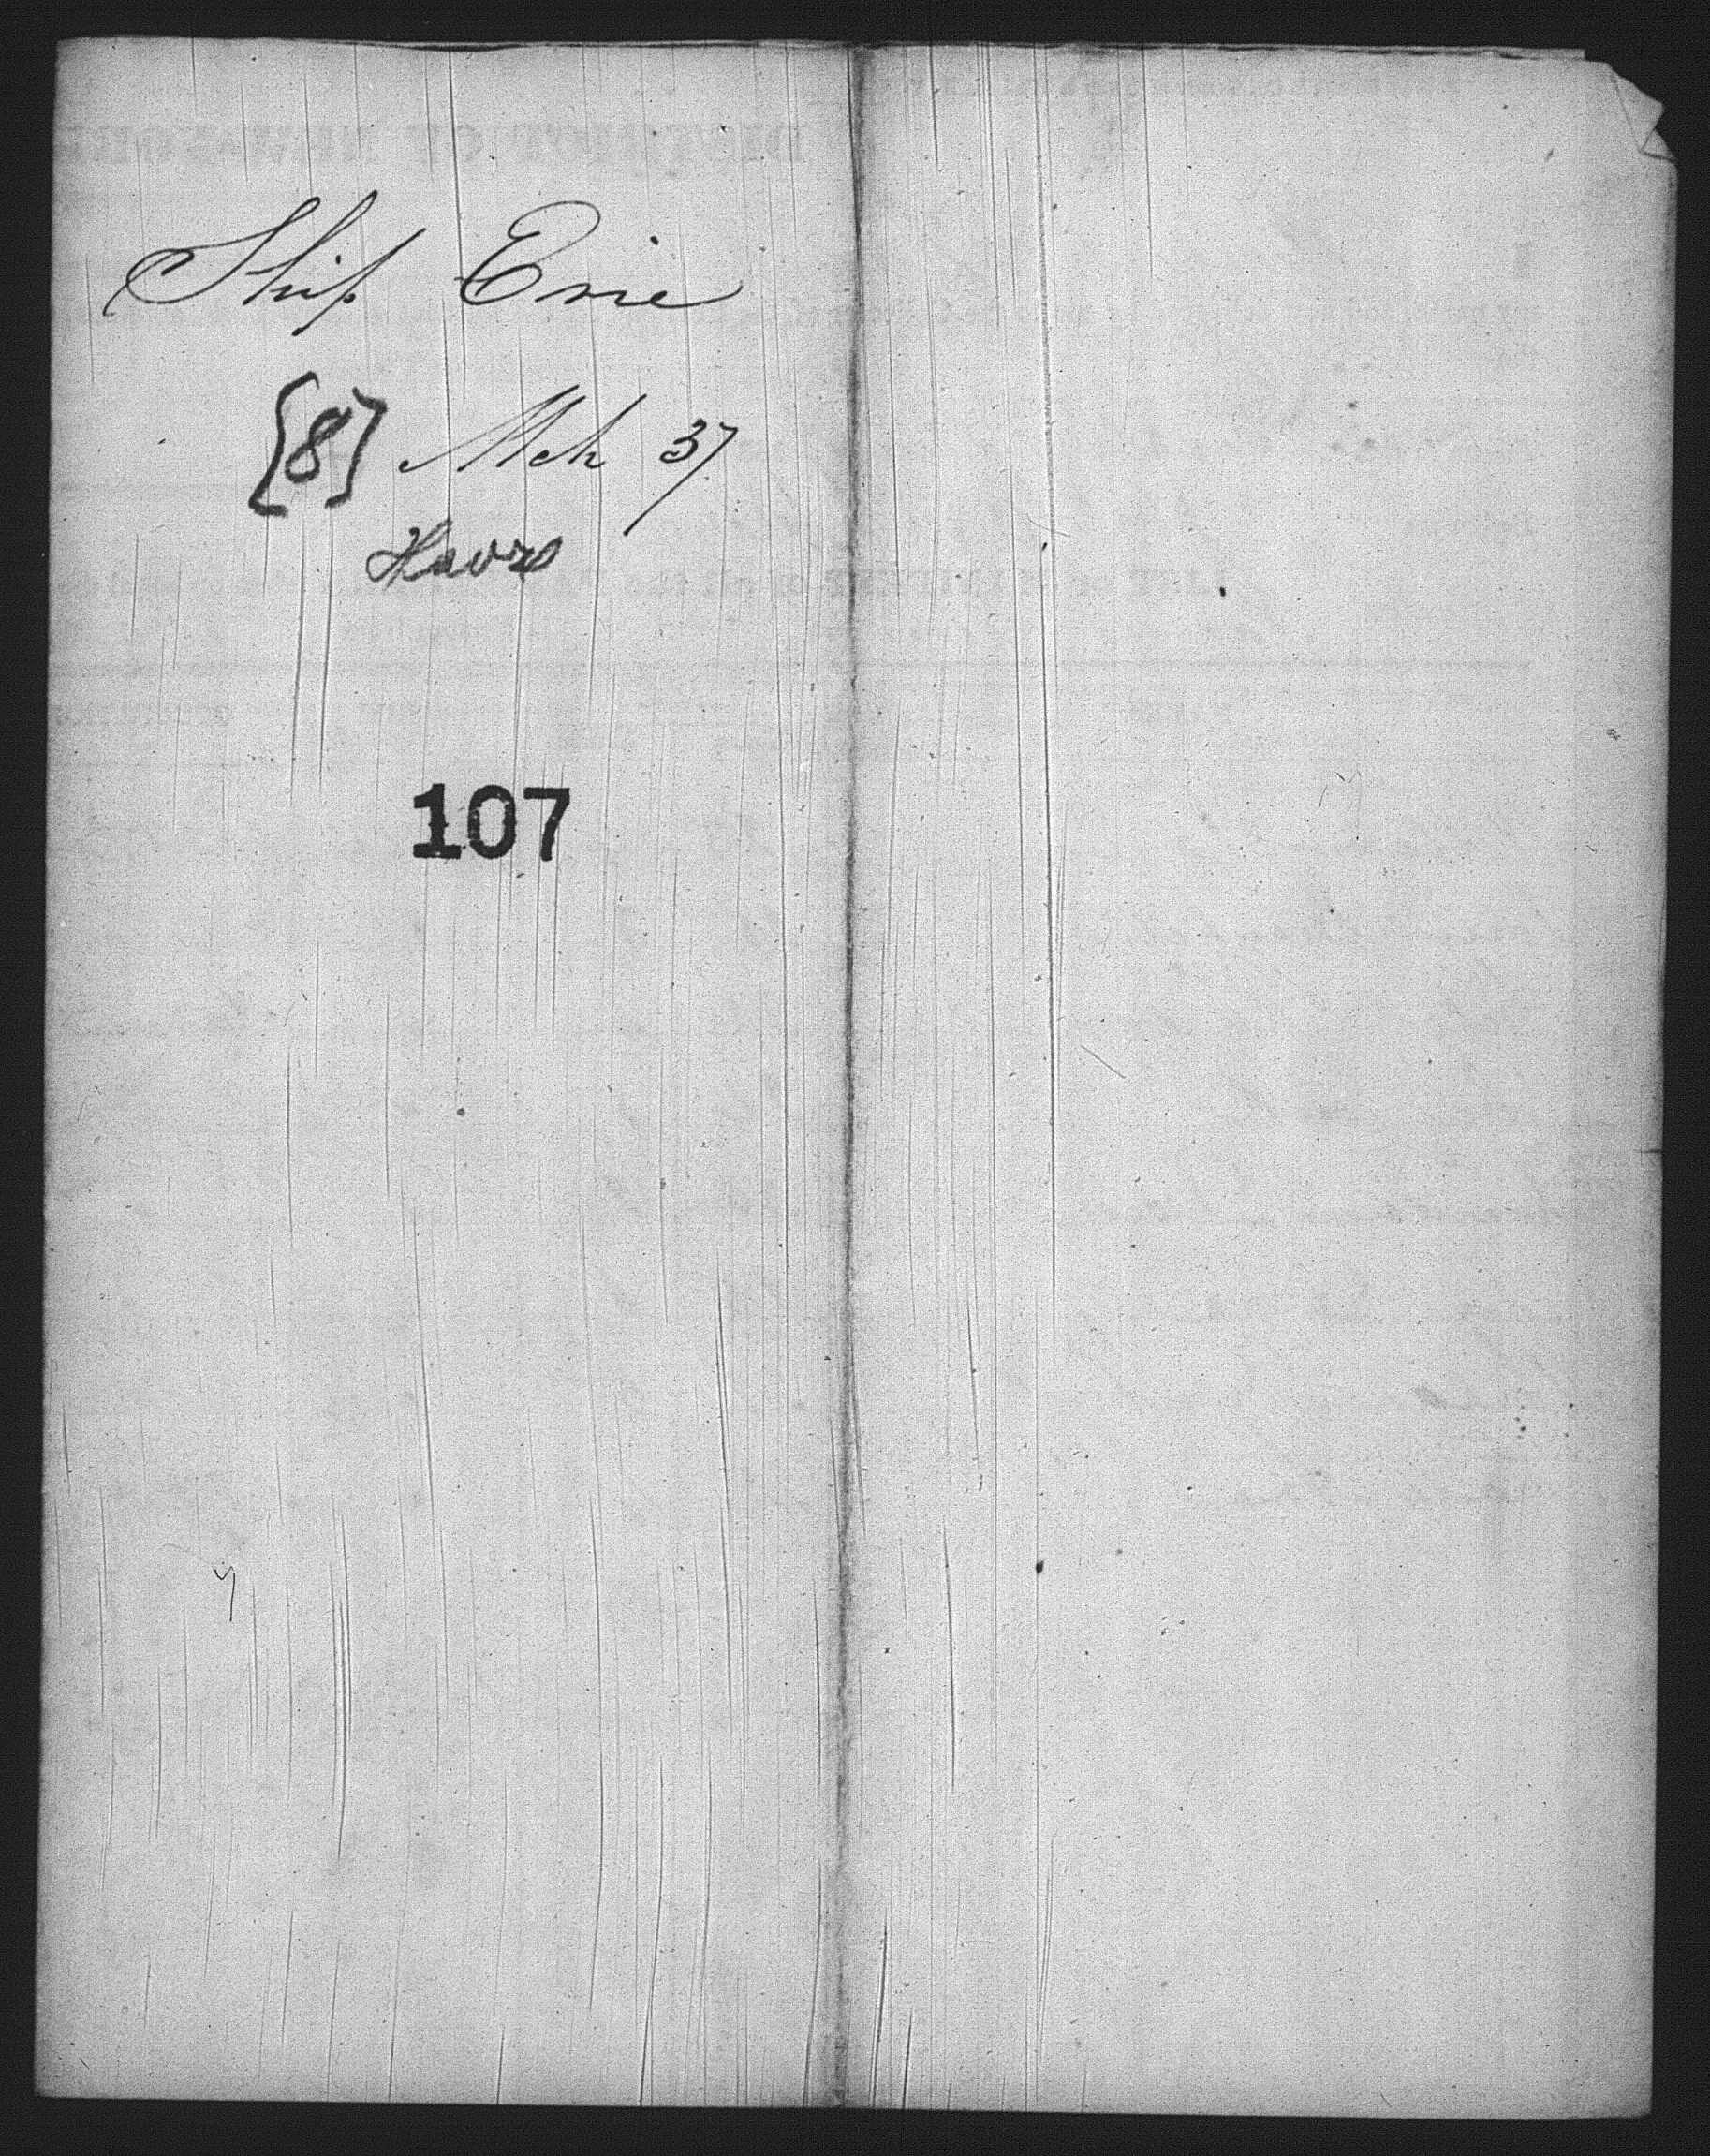 Ship Erie
[8] Mch 37
Havre
107